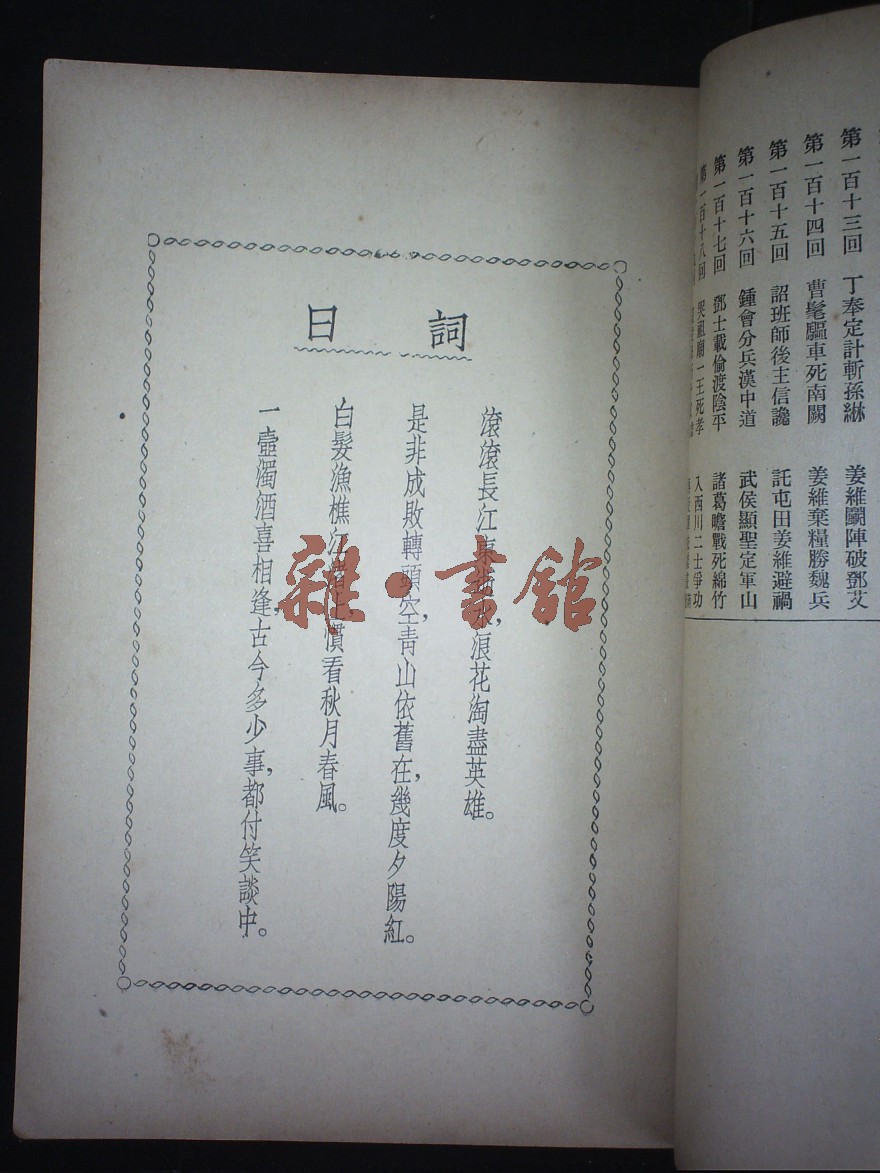 第一百十三回 丁奉定計斬孫綝 姜維鬭陣破鄧艾
第一百十四回 曹髦驅車死南闕 姜維棄糧勝魏兵
第一百十五回 詔班師後主信讒 託屯田姜維避禍
第一百十六回 鍾會分兵漢中道 武侯顯聖定軍山
第一百十七回 鄧士載偷渡陰平 諸葛瞻戰死綿竹
第一百十八回 哭祖廟一王死孝 入西川二士爭功
詞曰
滾滾長江東逝水，浪花淘盡英雄。
是非成敗轉頭空，靑山依舊在，幾度夕陽紅。
白髮漁樵江渚上慣看秋月春風。
一壺濁酒喜相逢，古今多少事，都付笑談中。
雜·書館